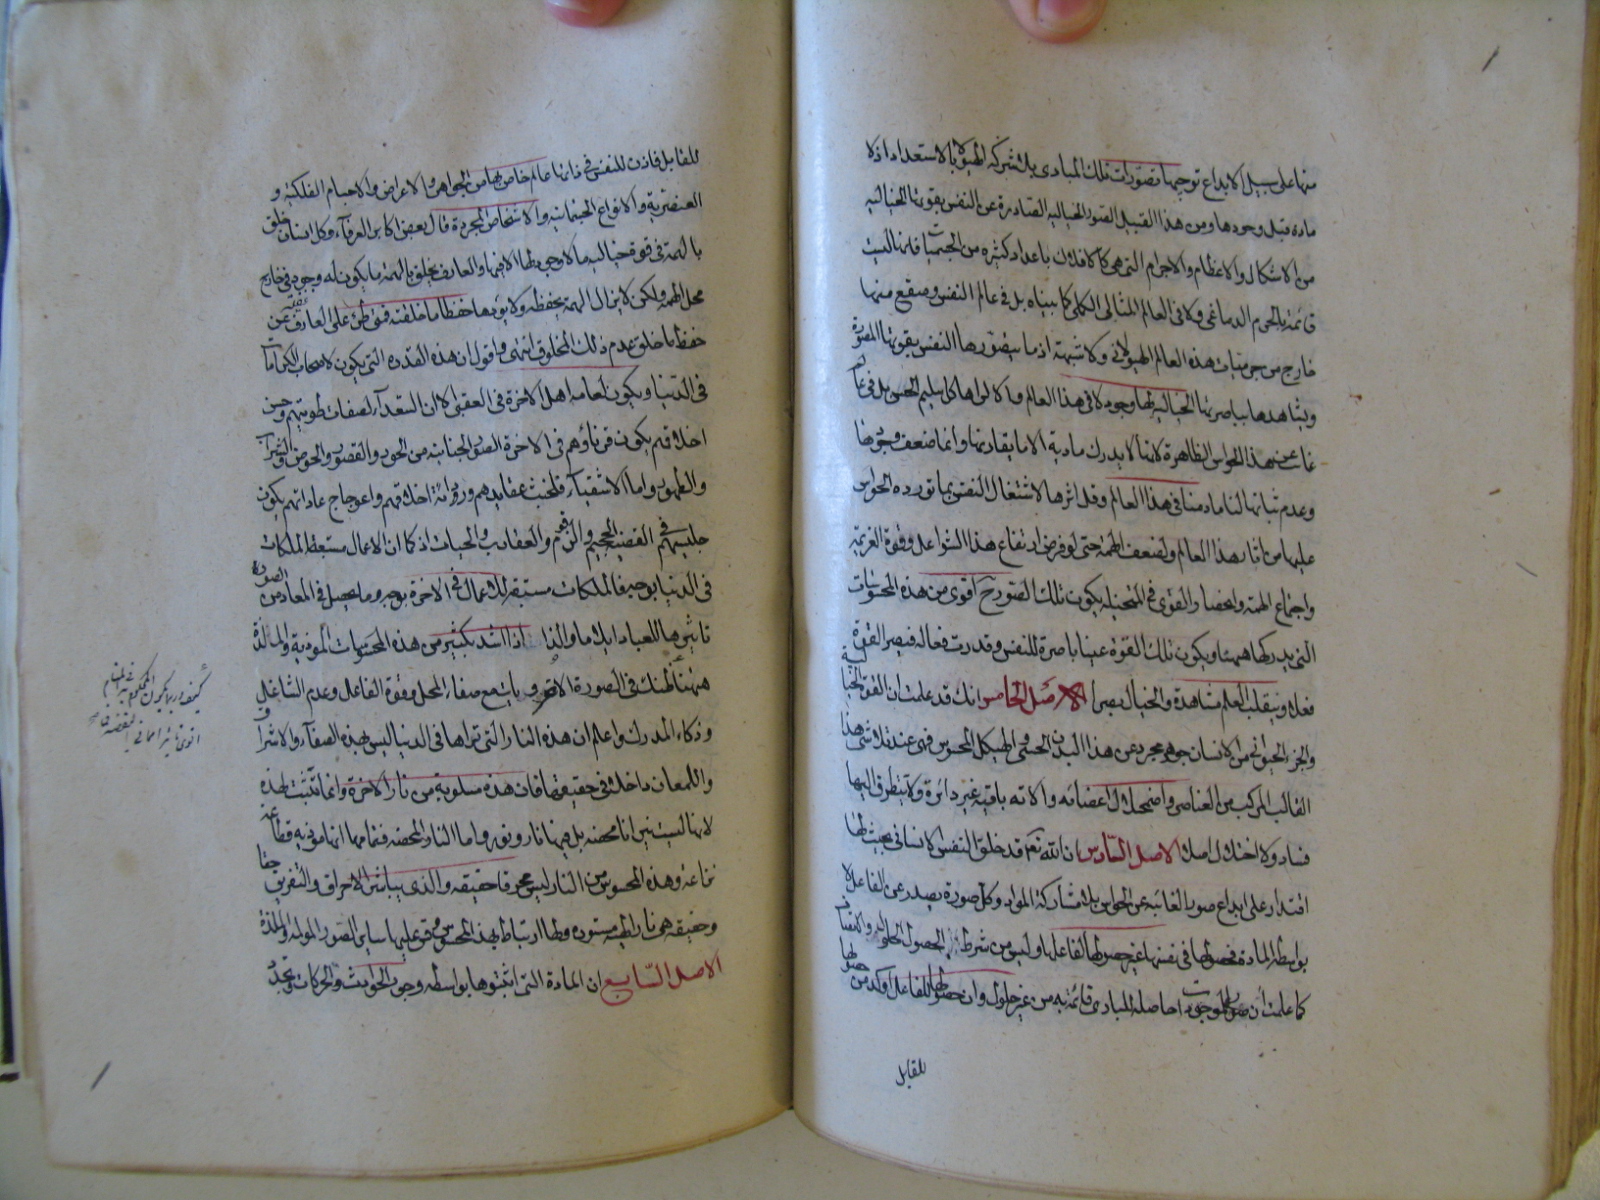 منها على سبيل الابداع توجيهها تصورات تلك المبادى بلا شركة الهيولا بالاستعداد اذ لا
مادة قبل وجودها ومن هذا القبيل الصور الخيالية الصادرة عن النفس بقوتها الخيالية
من الاشكال والاعظام والاجرام التى هى كالافلاك باعداد كثيرة من الجسميات فانها ليست
قائمة بالجرم الدماغى ولا فى العالم المثالى الكلى كما بيناه بل فى عالم النفس وصقع منها
خارج من جزئيات هذه العالم الهيولانى ولا شبهة اذ ما يتصورها النفس بقوتها المصورة
ويشاهدها بباصرتها الخيالية لها وجود لا فى هذا العالم والا لراها كل سليم الحس بل فى عالم
غائب عن هذا الحواس الظاهرة لانها لا يدرك مادية الا ما يقارنها وانما ضعف وجودها
وعدم ثباتها لنا مادمنا فى هذا العالم وقل اثرها لاشتغال النفس بما تورده الحواس
عليها من اثار هذا العالم ولضعف الهمة حتى لو فرض ارتفاع هذا الشواغل وقوة العزيمة
واجتماع الهمة وانحصار القوى فى المتخيلة يكون تلك الصورة ح اقوى من هذه المحسوسات
التى يدركها هيهنا ويكون تلك القوة عينا باصرة للنفس وقدرت فعالة فيصير القوة
فعلا وينقلب العلم مشاهدة والخيال بصرا الاصل الخامس انك قد علمت ان القوة الخيالية
والجزء الحيوانى من الانسان جوهر مجرد عن هذا البدن الحسى والهيكل المحسوس فهى عند تلاشى هذا
القالب المركب من العناصر واضمحلال اعضائه والاته باقية غير داثرة ولا يتطرق اليها
فساد ولا اختلال اصلا الاصل السادس ان الله تعم قد خلق النفس الانسانى بحيث لها
اقتدار على ابداع صور الغائبة عن الحواس بلا مشاركة المواد وكل صورة يصدر عن الفاعل لا
بواسطة المادة فحصولها فى نفسها عين حصولها لفاعلها وليس من شرط الحصول الحلول والاتصاف
كما علمت ان صور الموجودات حاصلة للمبادى قائمة به من غير حلول وان حصولها للفاعل اوكد من حصولها
للقابل
للقابل فاذن للنفس فى ذاتها عالم خاص بها من الجواهر والاعراض والاجسام الفلكية و
العنصرية والانواع الجسمانية والاشخاص المجردة قال بعض اكابر العرفاء وكل انسان يخلق
بالهمة فى قوة خياليه ما لا وجود لها الا فيها والعارف يخلق بالهمة ما يكون له وجود فى خارج
محل الهمة ولكن لا يزال الهمة يحفظه ولا يؤدها حفظا ما خلقته فمتى طرئ على العارف غفلة عن
حفظ ما خلق عدم ذلك المخلوق انتهى واقول ان هذه القدرة التى يكون لاصحاب الكرامات
فى الدنيا ويكون لعامة اهل الاخرة فى العقبى الا ان السعداء لصفات طويتهم وحسن
اخلاقهم يكون قرناؤهم فى الاخرة الصور الجنانية من الحور والقصور والحوض والشراب
والطهور واما الاشقياء فلخبث عقايدهم ورداءة اخلاقهم واعوجاج عاداتهم يكون
جليسهم فى القضية الجحيم والزقوم والعقارب والحيات اذ كما ان الاعمال مستتبعة للملكات
فى الدنيا بوجه فالملكات مستتبعة للاعمال فى الاخرة بوجه وما يحصل فى المعاد من الصور
تاثيرها للعباد ايلاما والذاذا اشد بكثير من هذه المحسوسات الموذية والملذة
هيهنا فما ظنك فى الصورة الاخرويات مع صفاء المحل وقوة الفاعل وعدم الشاغل
وذكاء المدرك واعلم ان هذه النار التى تراها فى الدنيا ليس لهذه الصفاء والاشراق
واللمعان داخلا فى حقيقتها فان هذه مسلوبة من نار الاخرة وانما تثبت لهذه
لانها ليست نيرانا محضة بل فيها نار ونور واما النار المحضة فتمامها انها موذية قطاعة
نزاعة وهذه المحسوس من النار ليس محرقا حقيقة والذى يباشر الاحراق والتفريق حقا
وحقيقة هى نار الهية مستورة ولها ارتباط بهذا المحسوس وقس عليها ساير الصور المولمة والملذة
الاصل السابع ان المادة التى اثبتوها بواسطة وجود الحوادث والحركات وتجدد